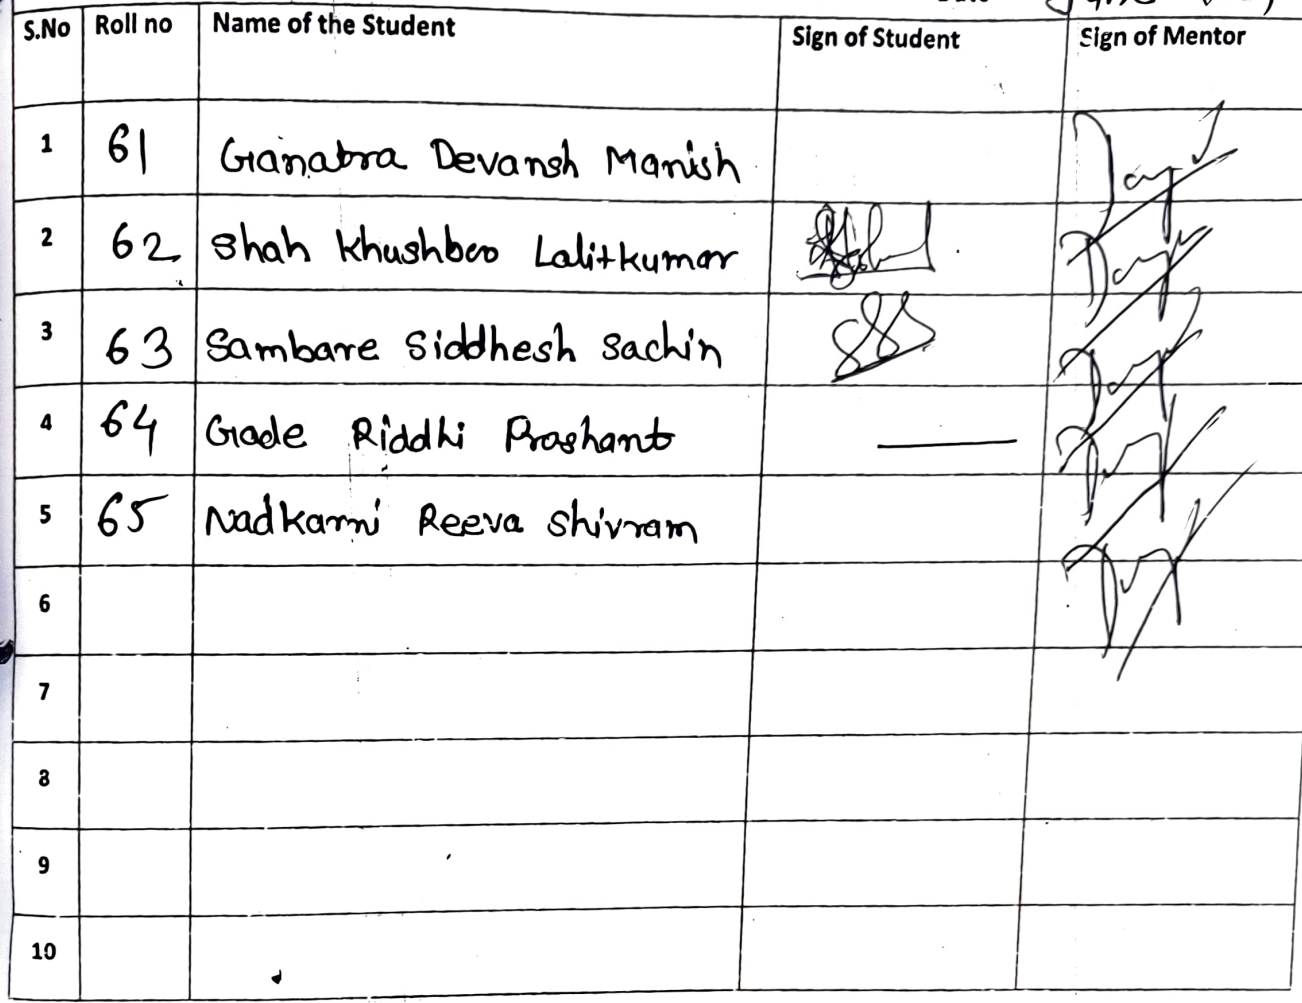 S.No Roll no Name of the Student Sign of Student Sign of Mentor
1 61 Ganatra Devansh Manish
2 62 Shah Khushboo Lalitkumar
3 63 Sambare Siddhesh Sachin
4 64 Gade Riddhi Prashant
5 65 Nadkarni Reeva Shivram
6
7
8
9
10